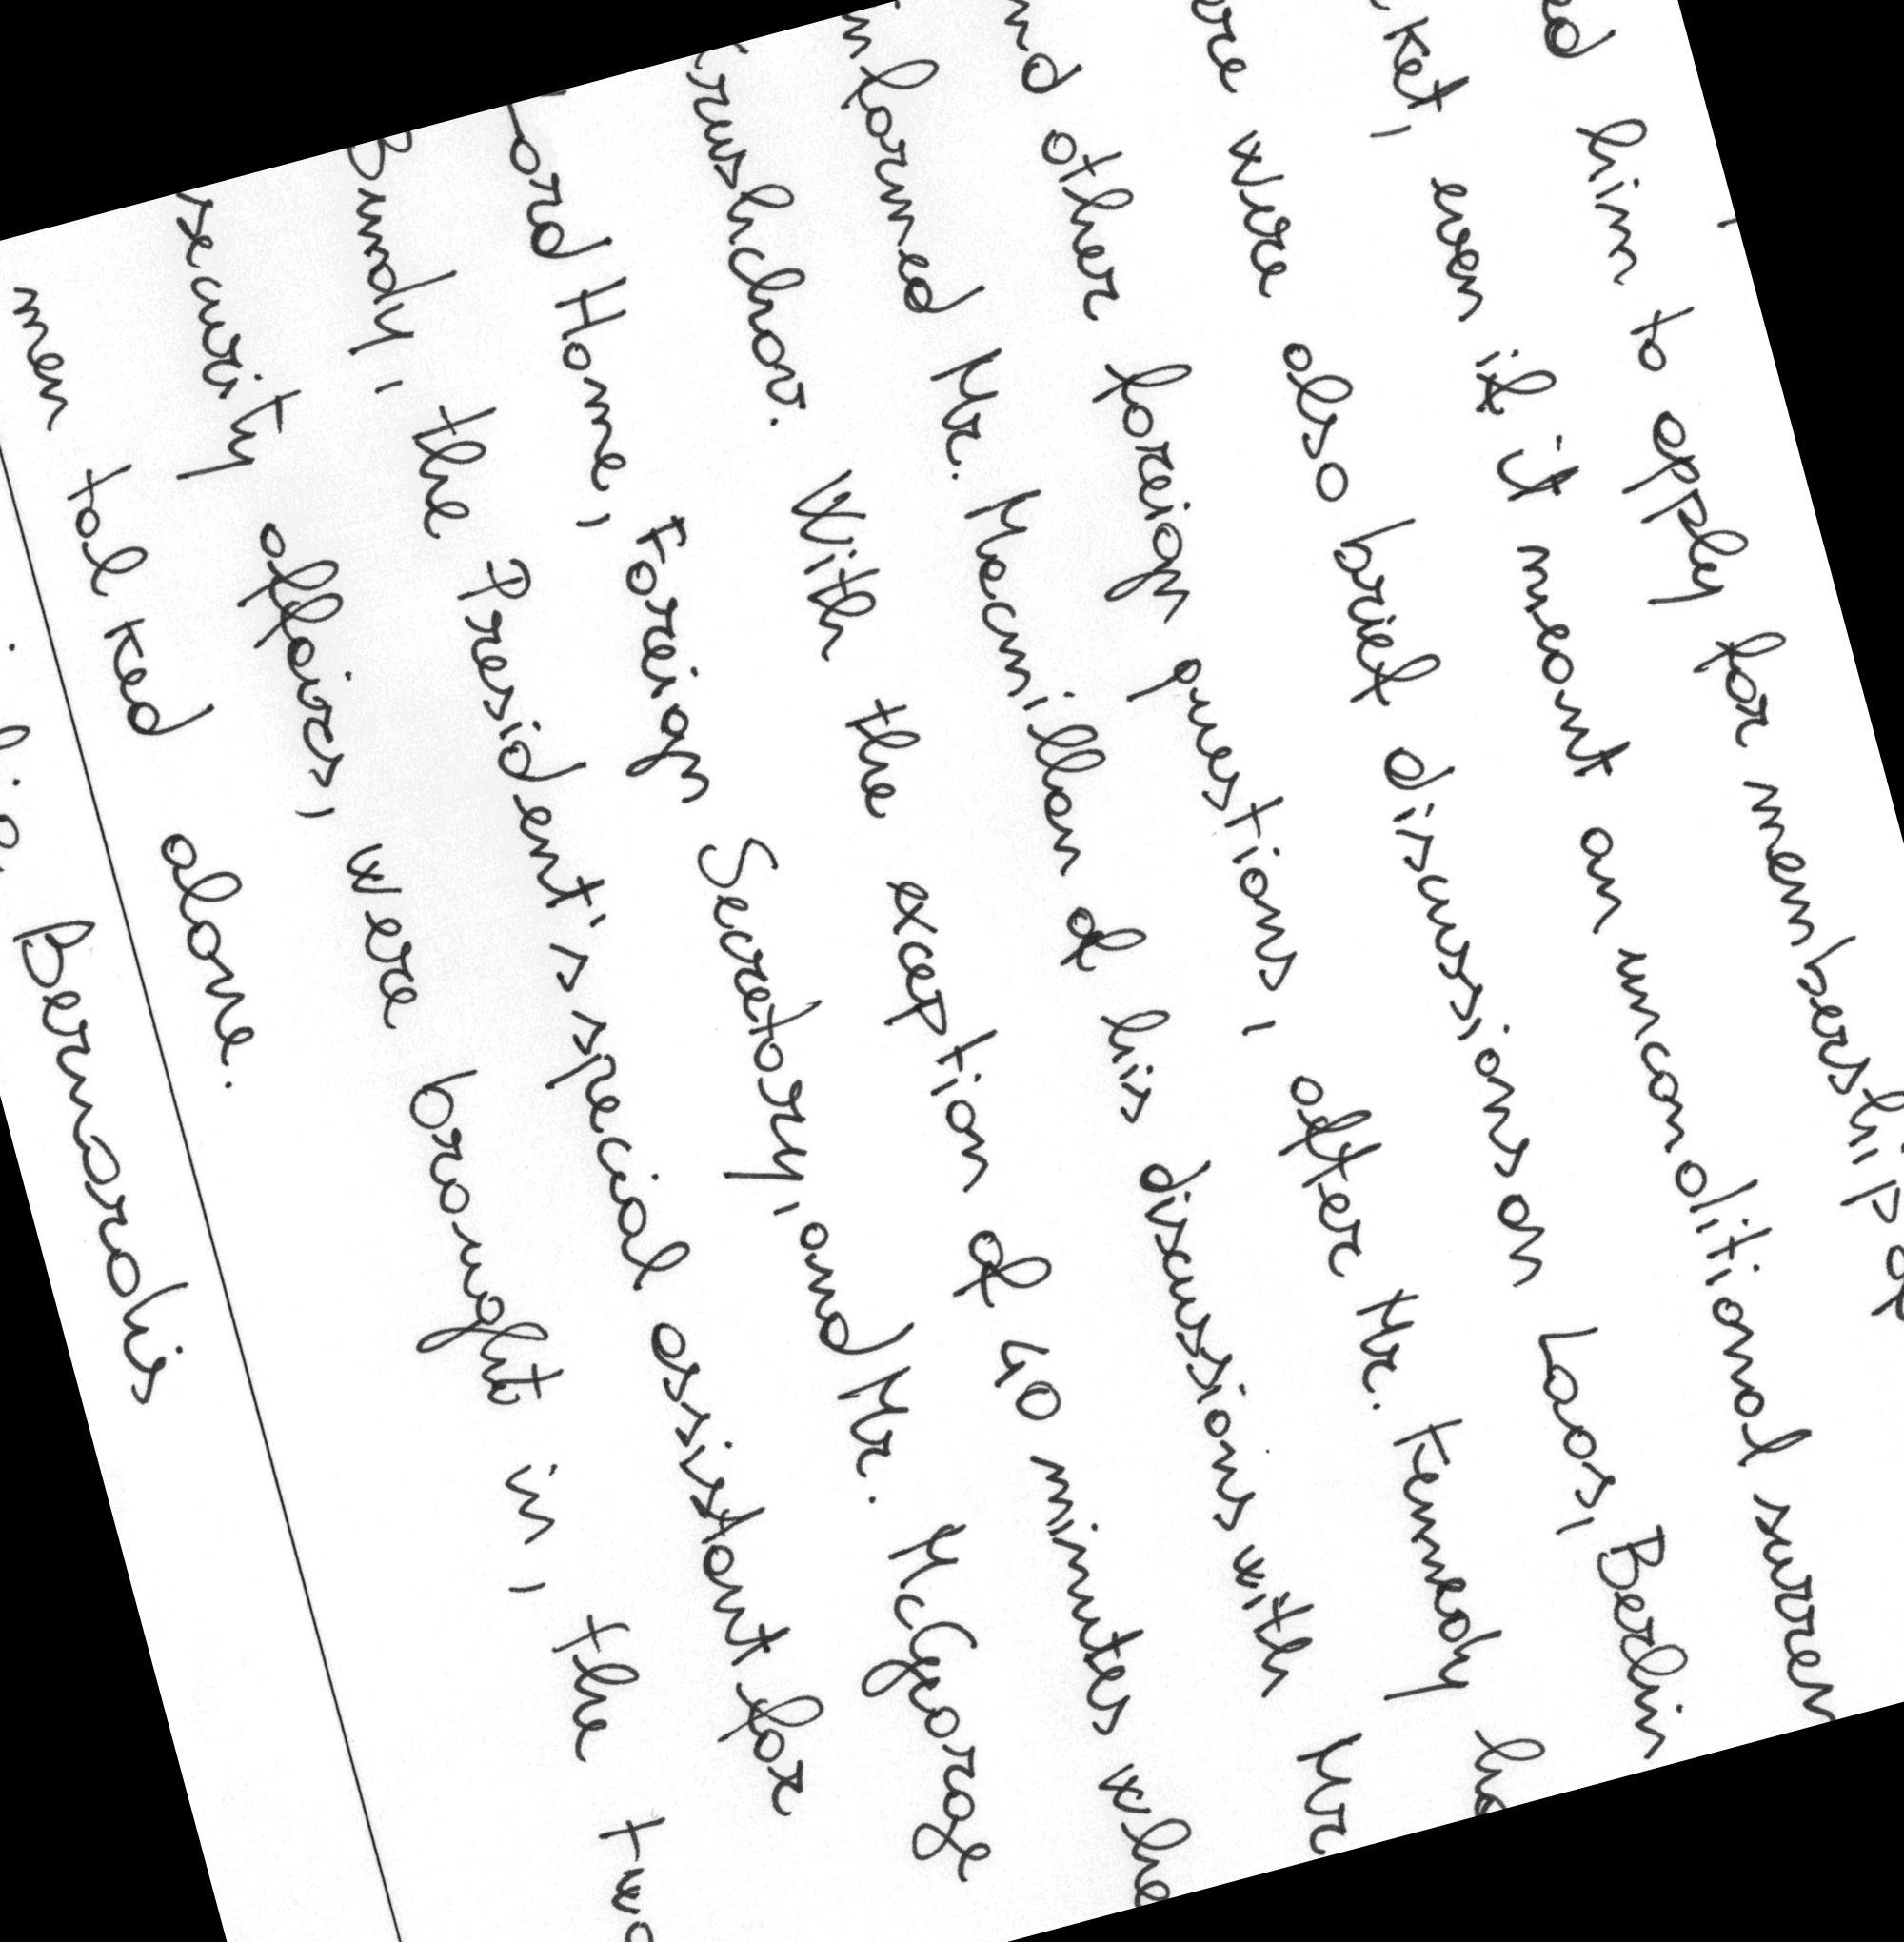 ed him to apply for membership of
ket, even if it meant an unconolitional surren
ere were also brief discussions on Laos, Berlin
nd other foreign questions, after Mr. Kennedy ha
nformed Mr. Macmillan of his discussions with Mr
rushchov. With the exception of 40 minutes whe
ord Home, Foreign Secretary, and Mr. McGeorge
Bundy, the President's special assistant for
security affairs, were brought in, the two
men talked alone.
Bernardis